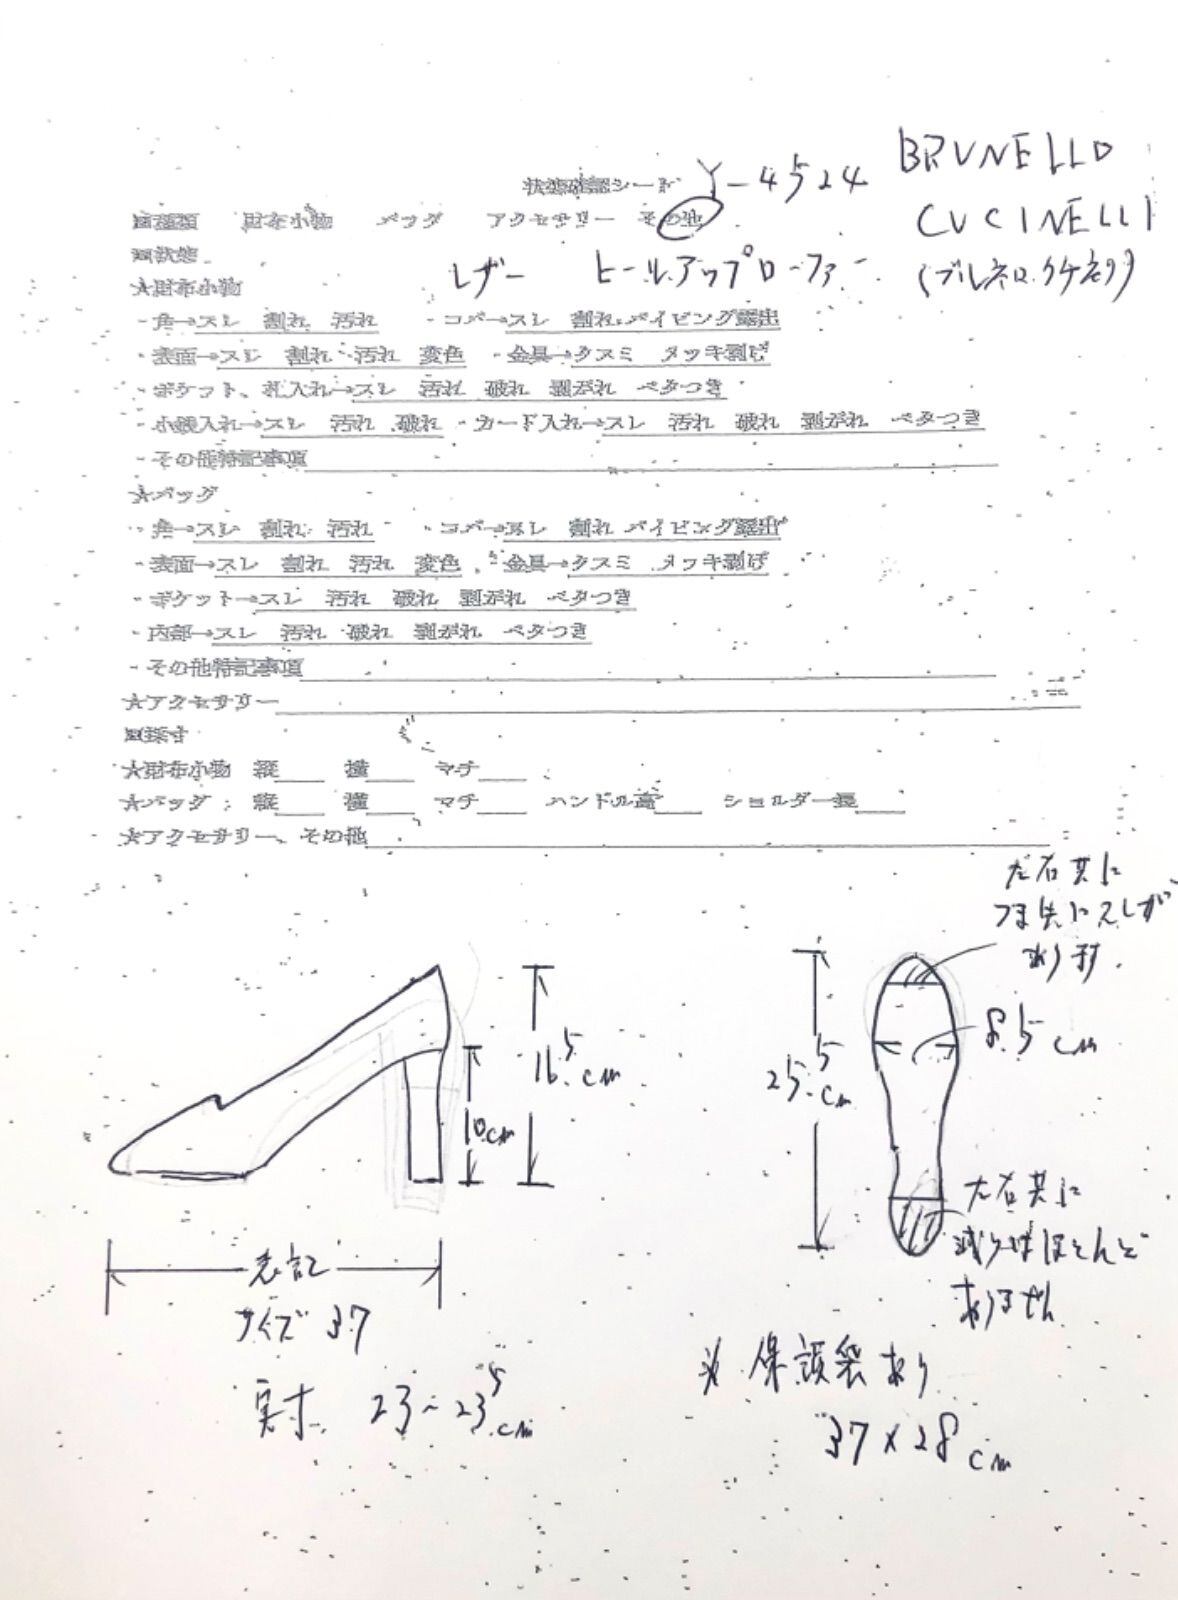 状態確認シート Y-4524
BRUNELLO
CUCINELLI
(ブルネロ クチネリ)
■種類 財布小物 バッグ アクセサリー その他
■状態
レザー ヒールアップローファー
★財布小物
・角→スレ 割れ 汚れ ・コバ→スレ 割れ パイピング露出
・表面→スレ 割れ 汚れ 変色 ・金具→クスミ メッキ剥げ
・ポケット、札入れ→スレ 汚れ 破れ 剥がれ ベタつき
・小銭入れ→スレ 汚れ 破れ ・カード入れ→スレ 汚れ 破れ 剥がれ ベタつき
・その他特記事項
★バッグ
・角→スレ 割れ 汚れ ・コバ→スレ 割れ パイピング露出
・表面→スレ 割れ 汚れ 変色 ・金具→クスミ メッキ剥げ
・ポケット→スレ 汚れ 破れ 剥がれ ベタつき
・内部→スレ 汚れ 破れ 剥がれ ベタつき
・その他特記事項
★アクセサリー
■採寸
★財布小物 縦 横 マチ
★バッグ: 縦 横 マチ ハンドル高 ショルダー長
★アクセサリー、その他
左右共に
つま先にスレが
あります.
16.5cm
10cm
25.5cm
8.5cm
左右共に
減りはほとんど
ありません
表記
サイズ 37
実寸 23~23.5cm
※ 保護袋あり
37×28cm